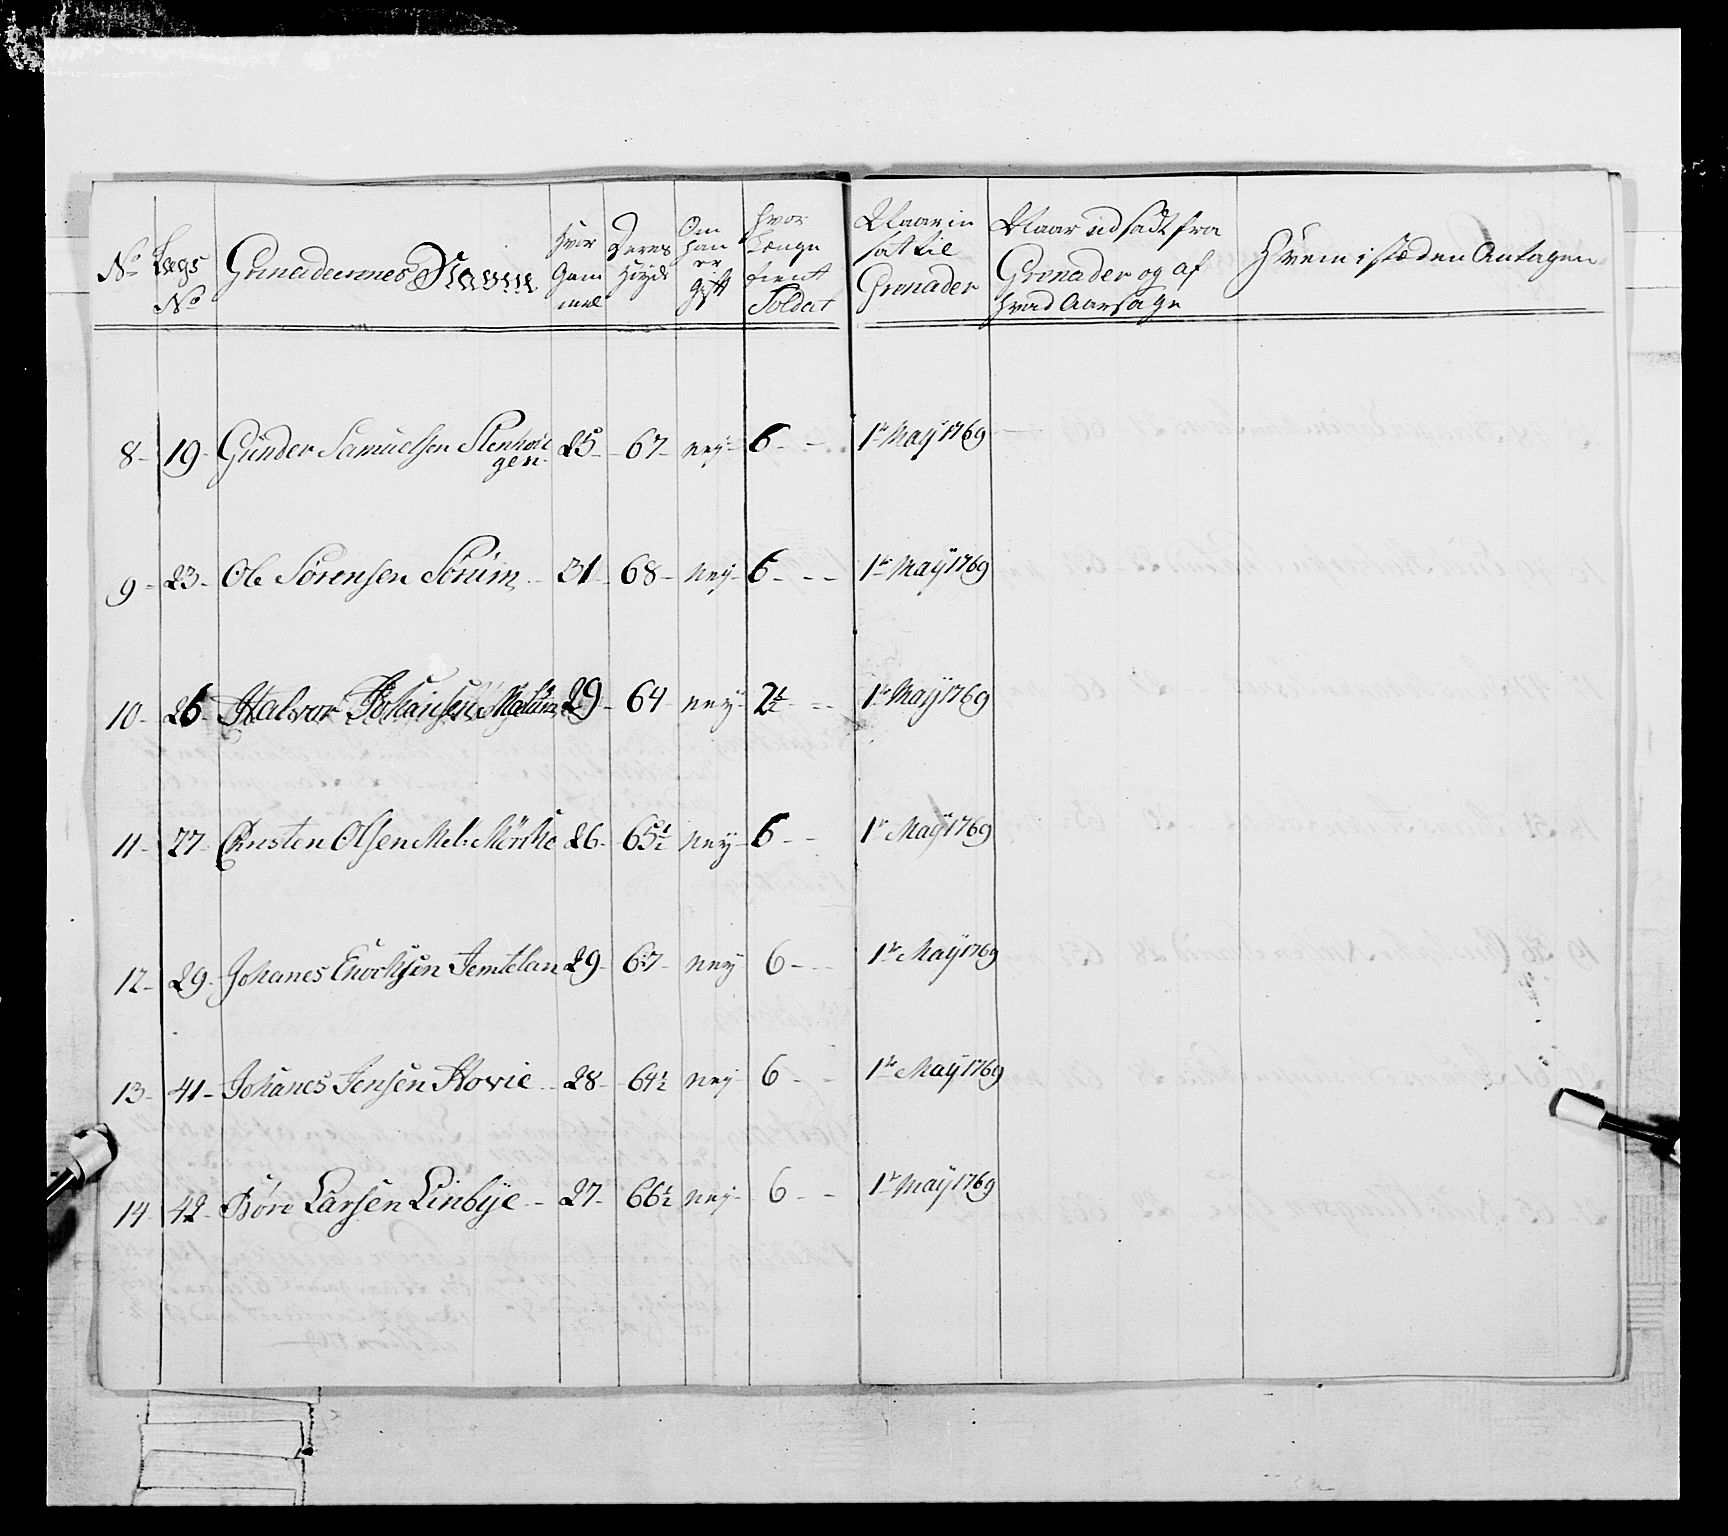 No
Lægs No
Grenadeernes Navne
Hvor Gammel
Deres Høyde
Om han er Gift
Hvor længe tient Soldat
Naar in sat til Grenader
Naar ud sadt fra Grenader og af hvad Aarsage
Hvem i stæden Antagen
8- 19- Gunder Samuelsen 25- 67- ney- 6- 1te Maÿ 1769
9- 23- Ole Sørensen Sørum 31- 68- ney- 6- 1te Maÿ 1769
10- 26- Halvor Johansen 29- 64- neÿ- 2½ 1te Maÿ 1769
11- 27- Christen Olsen Mel: Mörche 26- 65½ neÿ- 6- 1te Maÿ 1769
12- 29- Johanes Enochsen Jemtelan 29- 67- neÿ 6- 1te Maÿ 1769
13- 41- Johanes Jensen Hovie 28- 64½ neÿ 6- 1te Maÿ 1769
14- 42- Børe Larsen Linbÿe 27- 66½ neÿ- 6- 1te Maÿ 1769